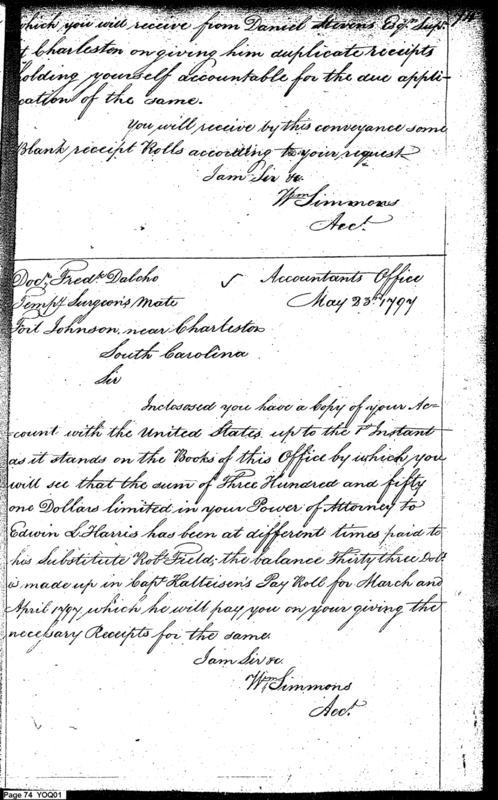 which you will receive from Daniel Stevens Esqr. Supr.
at Charleston on giving him duplicate receipts
holding yourself accountable for the due appli-
cation of the same.
You will receive by this conveyance some
Blank receipt Rolls according to your request
I am Sir &c.
Wm Simmons
Acct.
Docr. Fredk. Dalcho
Tempy. Surgeons Mate
Fort Johnson, near Charleston
South Carolina
Accountants Office
May 23d. 1797
Sir
Inclososed you have a Copy of your Ac-
count with the United States, up to the 1st Instant
as it stands on the Books of this Office by which you
will see that the sum of Three Hundred and fifty
one Dollars limited in your Power of Attorney to
Edwin L Harris has been at different times paid to
his Substitute Robt. Field; the balance Thirty three Dolls
is made up in Capt. Kalteisen's Pay Roll for March and
April 1797, which he will pay you on your giving the
necessary Receipts for the same.
I am Sir &c.
Wm Simmons
Acct.
Page 74 YOQ01